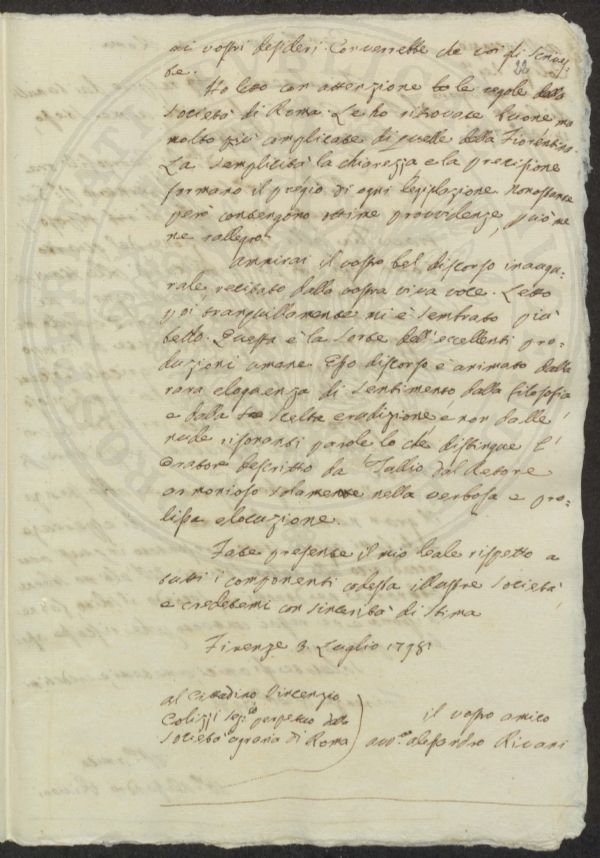 ai vostri desideri. Converrebbe che così si scrives-
se.
22
Ho letto con attenzione to le regole della
Società di Roma. Le ho ritrovate buone ma
molto più complicate di quelle della Fiorentina.
La semplicità la chiarezza e la precisione
formano il pregio di ogni legislazione. Nonostante
però contengono ottime providenze, può me
ne rallegro.
Ammirai il vostro bel discorso inaugu-
rale, recitato dalla vostra viva voce. Letto
poi tranquillamente mi è sembrato più
bello. Questa è la sorte dell'eccellenti pro-
duzioni umane. Esso discorso è animato dalla
rara eloquenza di sentimento dalla filosofia
e dalla scelta erudizione e non dalle
nude risonanti parole lo che distingue l'
Orator descritto da Tullio dal Retore
armonioso solamente nella verbosa e pro-
lissa elocuzione.
Fate presente il mio leale rispetto a
tutti i componenti codesta illustre Società,
e credetemi con sincerità di stima
Firenze 3. Luglio 1798
al Cittadino Vincenzio
Colizzi Seg.rio perpetuo della
Società agraria di Roma
il vostro amico
avv.o alessandro Rivani